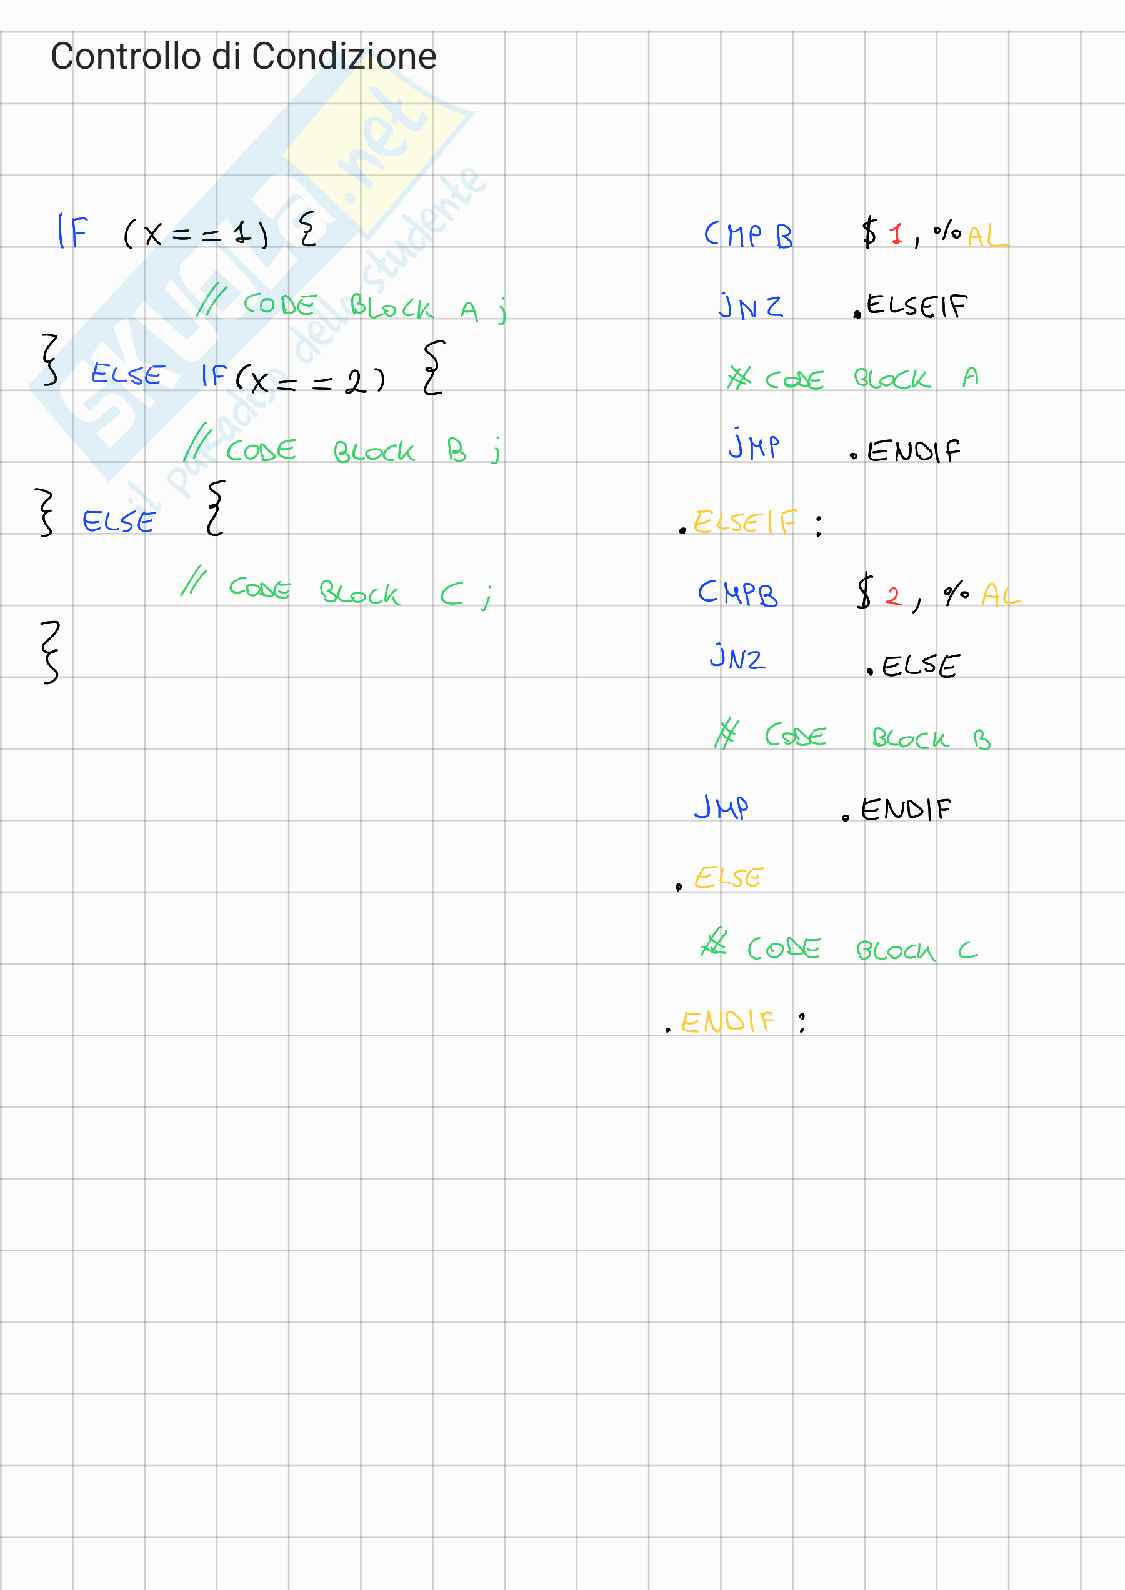 Controllo di Condizione
SKUOLA.net
il paradiso dello studente
IF (X==1) {
// CODE BLOCK A ;
} ELSE IF(X==2) {
// CODE BLOCK B ;
} ELSE {
// CODE BLOCK C ;
}
CMPB $1, %AL
JNZ .ELSEIF
# CODE BLOCK A
JMP .ENDIF
.ELSEIF :
CMPB $2, %AL
JNZ .ELSE
# CODE BLOCK B
JMP .ENDIF
.ELSE
# CODE BLOCK C
.ENDIF :